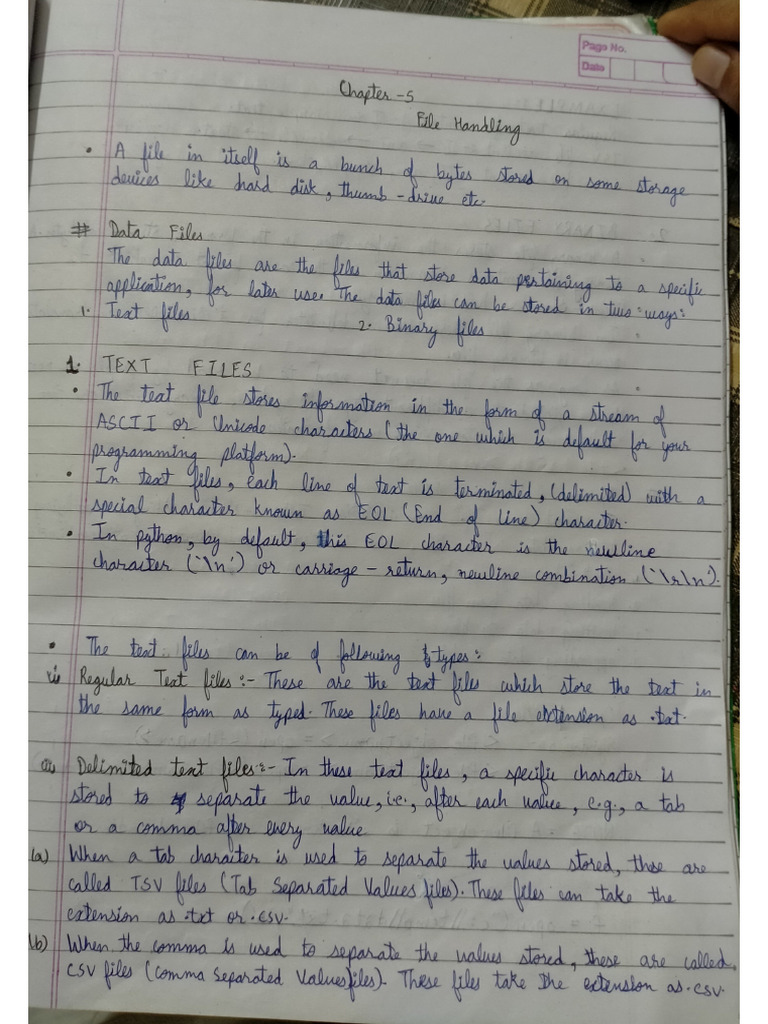 Page No.
Date
Chapter-5
File Handling
• A file in itself is a bunch of bytes stored on some storage
devices like hard disk, thumb-drive etc.
# Data Files
The data files are the files that store data pertaining to a specific
application, for later use. The data files can be stored in two ways:
1. Text files 2. Binary files
1. TEXT FILES
• The text file stores information in the form of a stream of
ASCII or Unicode characters (the one which is default for your
programming platform).
• In text files, each line of text is terminated, (delimited) with a
special character known as EOL (End of line) character.
• In python, by default, this EOL character is the newline
character ('\n') or carriage-return, newline combination ('\r\n').
• The text files can be of following types:
(i) Regular Text files:- These are the text files which store the text in
the same form as typed. These files have a file extension as .txt.
(ii) Delimited text files:- In these text files, a specific character is
stored to separate the value, i.e., after each value, e.g., a tab
or a comma after every value
(a) When a tab character is used to separate the values stored, these are
called TSV files (Tab Separated Values files). These files can take the
extension as .txt or .csv.
(b) When the comma is used to separate the values stored, these are called
CSV files (comma Separated Values files). These files take the extension as .csv.